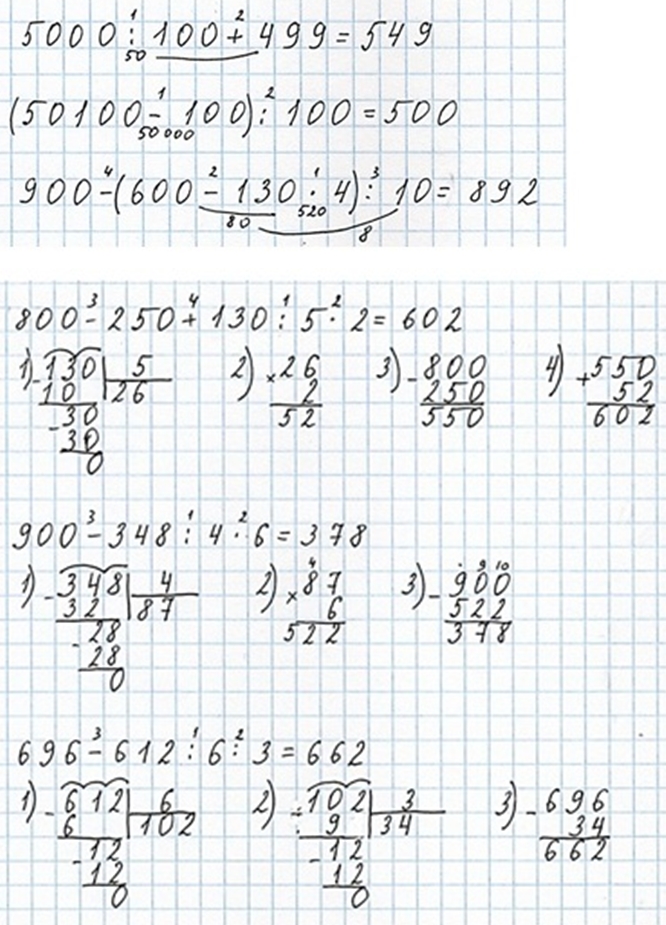 1 2
5000 : 100 + 499 = 549
50
1 2
(50100 - 100) : 100 = 500
50 000
4 2 1 3
900 - (600 - 130 · 4) : 10 = 892
520
80
8
3 4 1 2
800 - 250 + 130 : 5 · 2 = 602
1) - 130 5 2) × 26 3) - 800 4) + 550
10 26 2 250 52
- 30 52 550 602
30
0
3 1 2
900 - 348 : 4 · 6 = 378
4 · 9 10
1) - 348 4 2) × 87 3) - 900
32 87 6 522
- 28 522 378
28
0
3 1 2
696 - 612 : 6 : 3 = 662
1) - 612 6 2) - 102 3 3) - 696
6 102 9 34 34
- 12 - 12 662
12 12
0 0